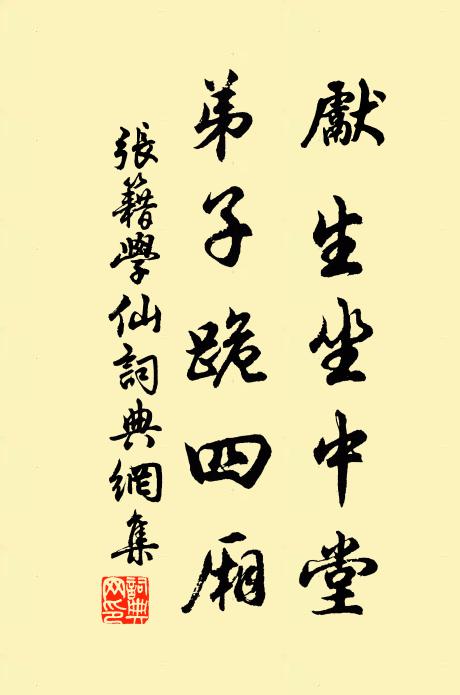 獻生坐中堂
弟子跪四廂
張籍學仙詞典網集
詞典
网印